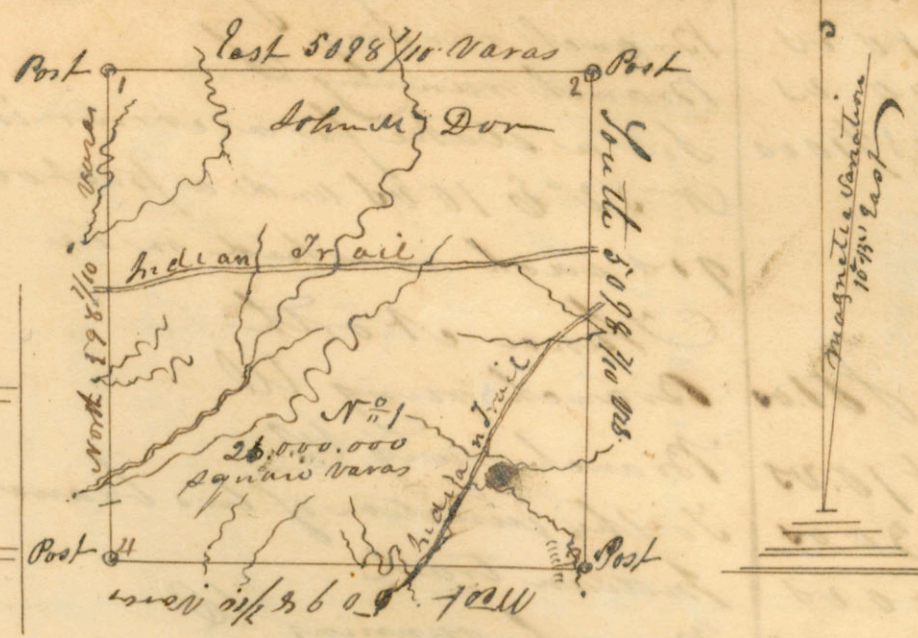 East 5098 7/10 Varas
Post
1
2
Post
John M Dor
South 5098 7/10 vrs.
North 5098 7/10 varas
Indian Trail
Indian Trail
No 1
26.000.000
Square Varas
Post
4
Post
West 5098 7/10 Varas
Magnetic Variation
East